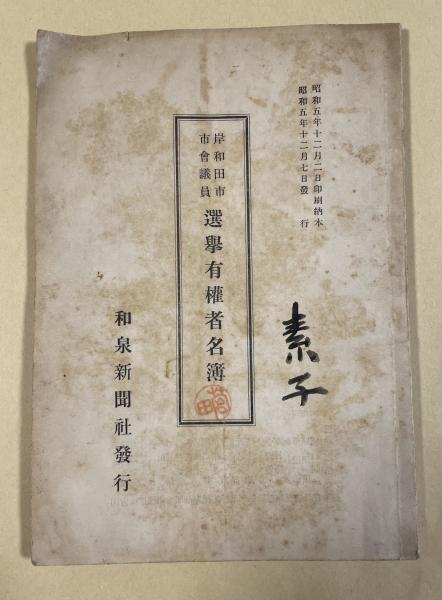 昭和五年十二月二日印刷納本
昭和五年十二月七日發行
岸和田市
市會議員
選擧有權者名簿
素子
和泉新聞社發行